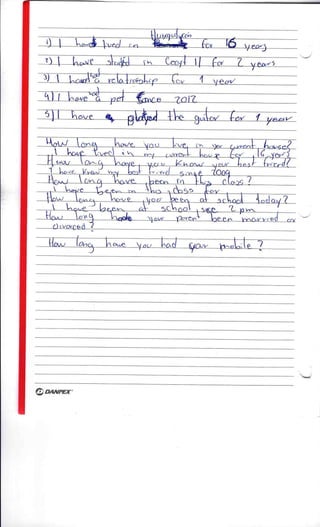 1) I have lived in Hungary for 16 years
2) I have studied in Ceoyl 11 for 2 years
3) I had a relationship for 1 year
4) I have a pet since 2012
5) I have played the guitar for 1 year
How long have you live in your current house?
I have lived in my current house for 16 years
How long have you know your best friend?
I have know my best friend since 2009
How long have been in this class?
I have been in this class for
How long have you been at school today?
I have been at school 2 pm
How long your parent been married or
Divorced?
How long have you had your mobile?
DANPEX